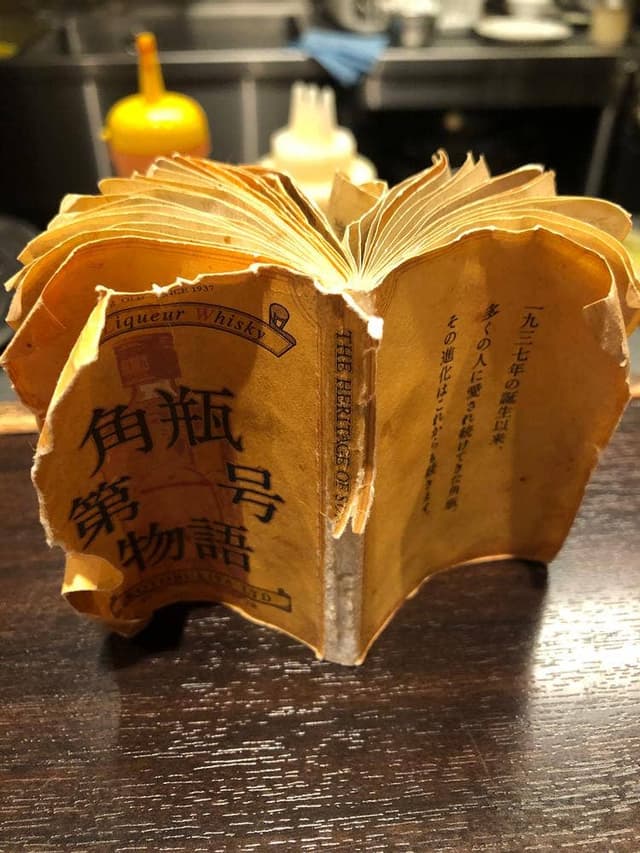 SINCE 1937
Liqueur Whisky
角瓶
第一号
物語
KOTOBUKIYA LTD
THE HERITAGE OF
一九三七年の誕生以来、
多くの人に愛され続けてきた角瓶。
その進化はこれからも続きます。